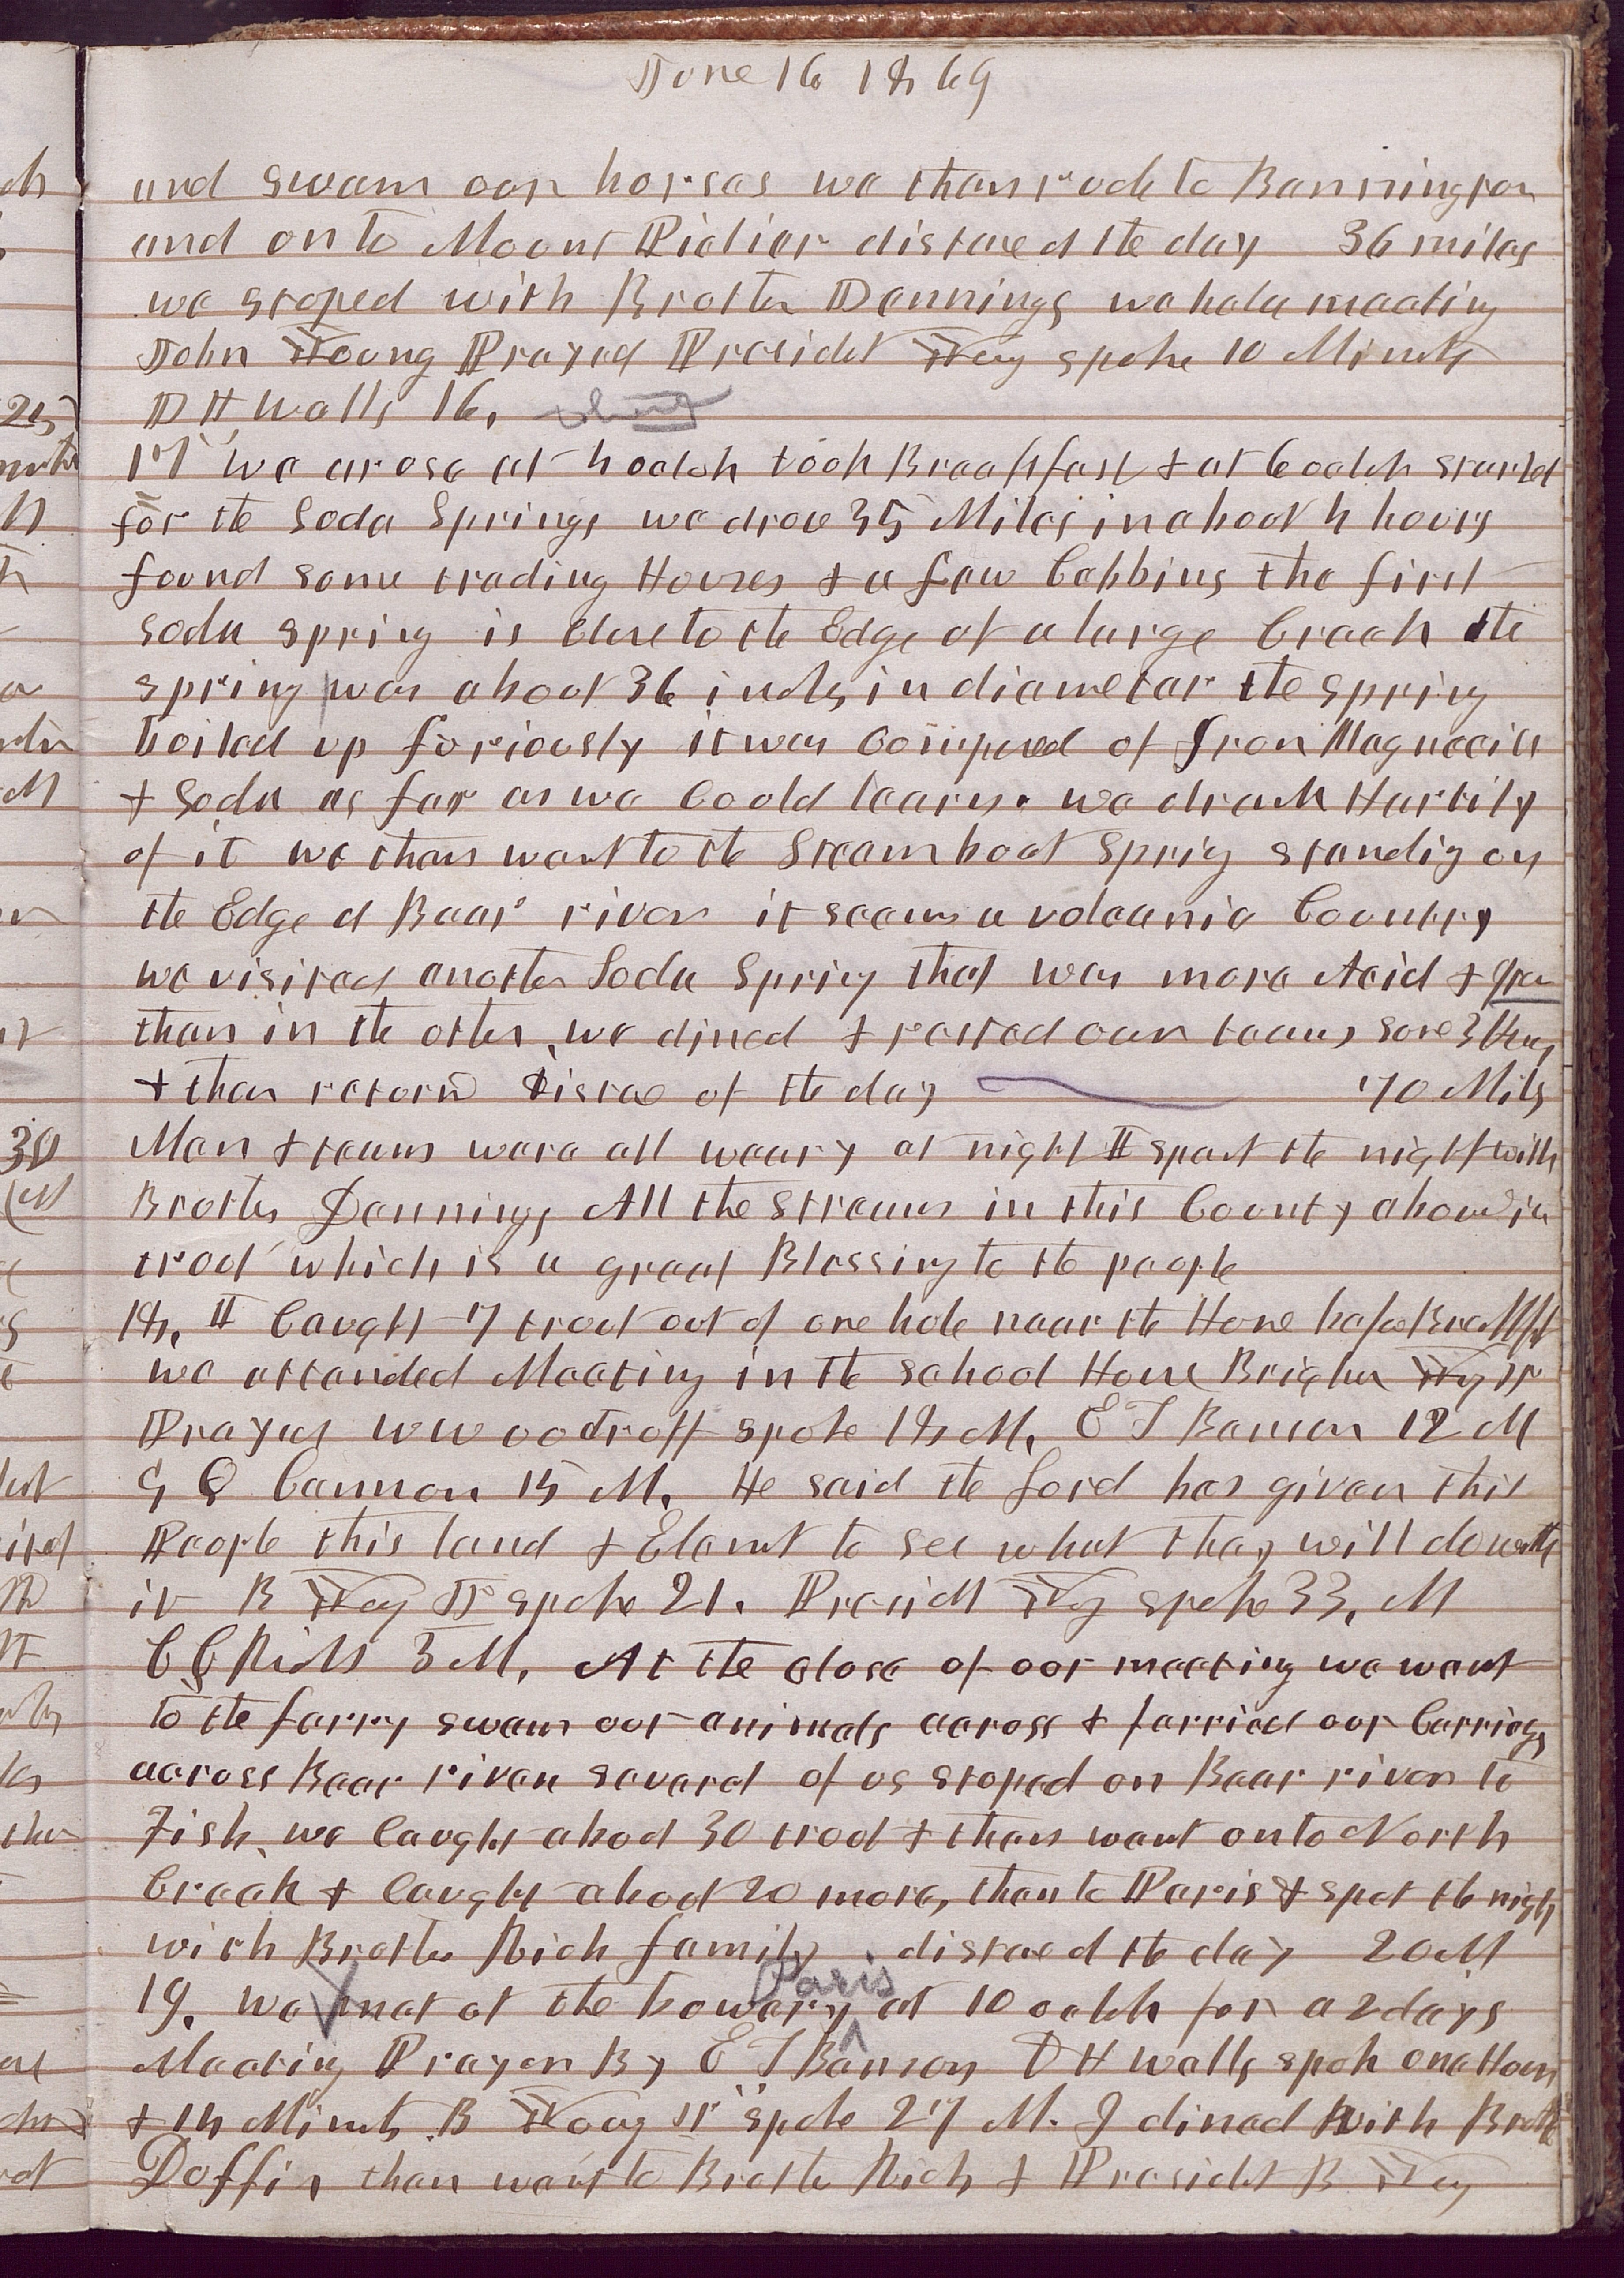 June 16 1869
and swam our horses we then rode to Bennington
and on to Mount Pidlier distance of the day 36 miles
we stoped with Brother Dennings we held meeting
John Young Prayed Presidet Yg spoke 10 Minuts
D H Wells 16.
17 we arose at 4 oclok took Breakfast & at 6 oclok started
for the Soda Springs we drove 35 Miles in about 4 hours
found some trading Houses & a few Cabbins the first
soda spring is Close to the Edge of a large Creek the
spring was about 36 inches in diameter the spring
boiled up furiously it was Composed of Iron Magneecia
& Soda as far as we Could learn. we drank Hartily
of it we then went to the Steam boat Spring standing on
the Edge of Bear river it seems a volcanic Country
we visited another Soda Spring that was more Acid &
than in the other, we dined & rested our teams some 3 Hours
& then returnd distance of the day 70 Miles
Men & teams were all weary at night I spent the night with
Brother Dennings All the streams in this County abound in
trout which is a great Blessing to the people
18. I Caught 7 trout out of one hole near the House before Breakfast
we attended Meeting in the school House Brigham Yg jr
Prayed W Woodruff spoke 18 M, E T Benson 12 M
G Q Cannon 15 M, He said the Lord has given this
People this land & Elemet to see what they will do with
it B Yg Jr spoke 21. Presidet Yg spoke 33, M
C C Rich 3 M, At the close of our meeting we went
to the ferry swam our animals across & ferried our Carriages
across Bear river several of us stoped on Bear river to
Fish, we Caught about 30 trout & then went on to North
Creek & Caught about 20 more, then to Paris & spet the night
with Brother Rich family distance of the day 20 M
19. We met at the bowery Paris at 10 oclok for a 2 days
Meeting Prayer By E T Benson D H Wells spoke one Hour
& 14 Minuts B Young jr spoke 27 M. I dined with Brother
Doffin then went to Brother Rich & Presidet B Yg